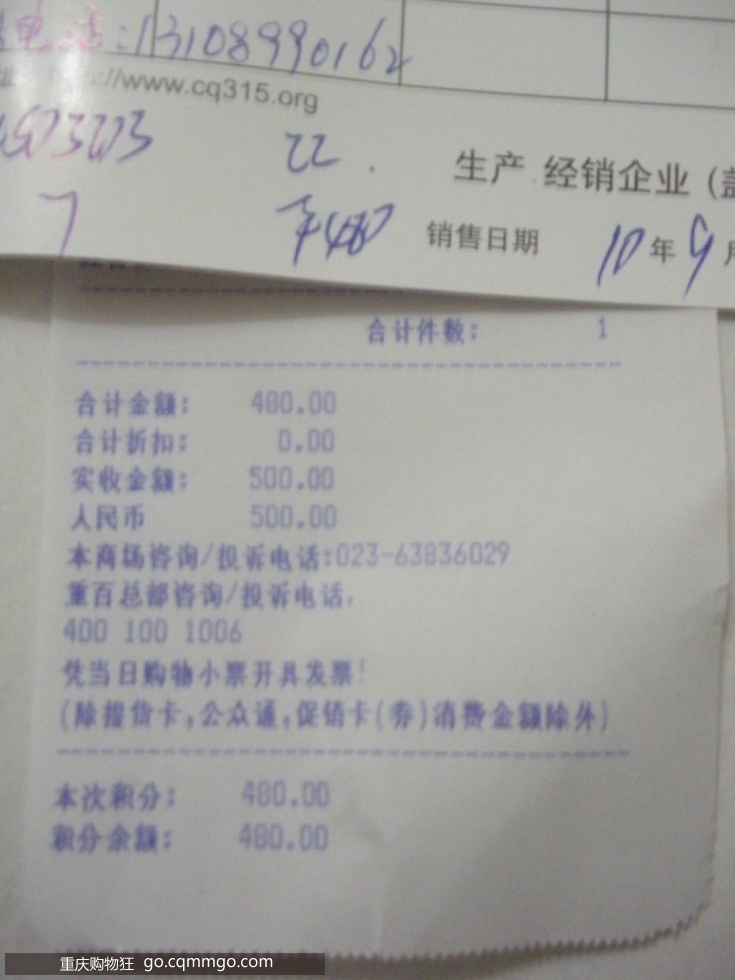 电话:13108990162
://www.cq315.org
22.
生产 经销企业
7
¥480 销售日期 10年9月
合计件数: 1
合计金额: 480.00
合计折扣: 0.00
实收金额: 500.00
人民币 500.00
本商场咨询/投诉电话:023-63836029
重百总部咨询/投诉电话,
400 100 1006
凭当日购物小票开具发票!
(除提货卡,公众通,促销卡(券)消费金额除外)
本次积分: 480.00
积分余额: 480.00
重庆购物狂 go.cqmmgo.com